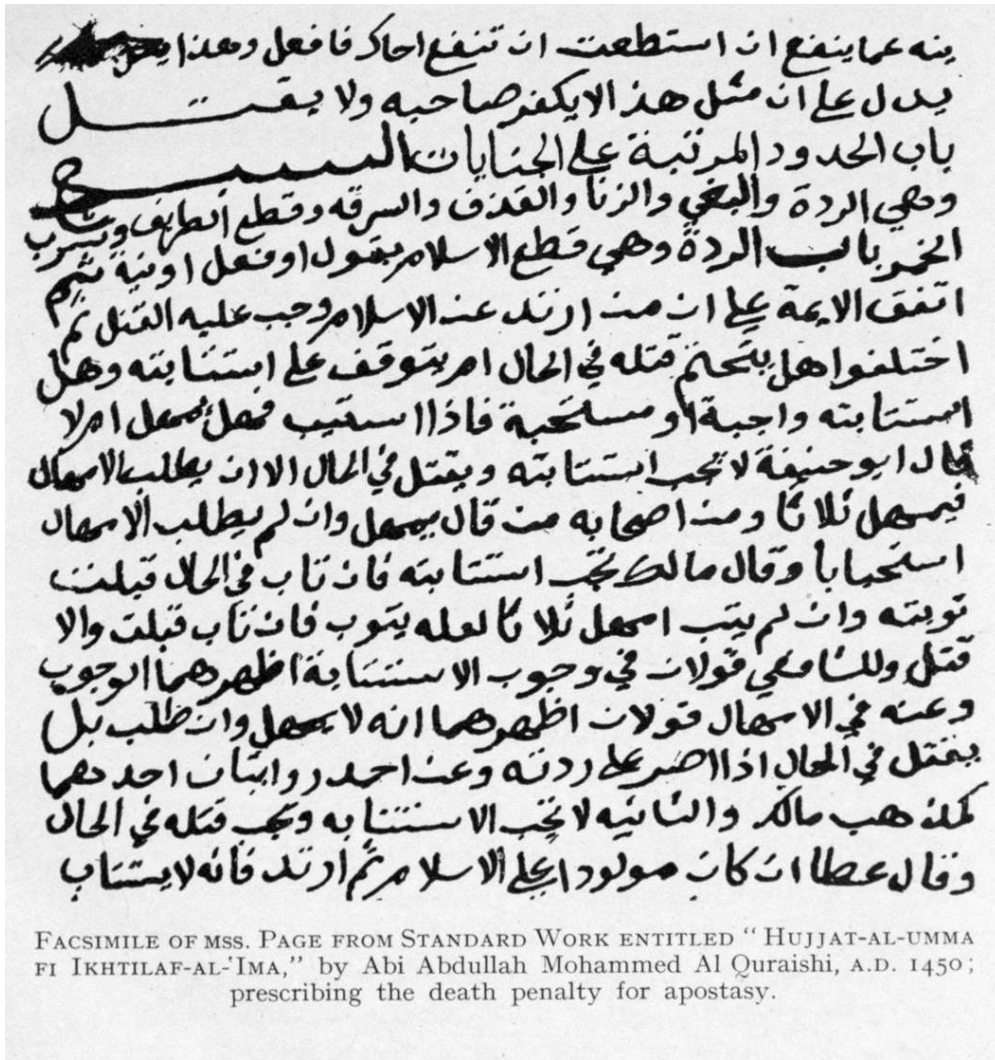 ينه عما ينفع ان استطعت ان تنفع اخاك فافعل وهذا
يدل على ان مثل هذا لا يكفر صاحبه ولا يقتل
باب الحدود المرتبة على الجنايات السبع
وهي الردة والبغي والزنا والقذف والسرقه وقطع الطريق وشرب
الخمر باب الردة وهي قطع الاسلام بقول او فعل او نية
اتفق الايمة على ان من ارتد عن الاسلام وجب عليه القتل ثم
اختلفوا هل يتحتم قتله في الحال ام يتوقف على استتابته وهل
استتابته واجبة او مستحبة فاذا استتيب فهل يمهل ام لا
قال ابو حنيفة لا تجب استتابته ويقتل في الحال الا ان يطلب الامهال
فيمهل ثلاثا ومن اصحابه من قال يمهل وان لم يطلب الامهال
استحبابا وقال مالك تجب استتابته فان تاب في الحال قبلت
توبته وان لم يتب امهل ثلاثا لعله يتوب فان تاب قبلت والا
قتل وللشافعي قولان في وجوب الاستتابة اظهرهما الوجوب
وعنه في الامهال قولان اظهرهما انه لا يمهل وان طلب بل
يقتل في الحال اذا اصر على ردته وعن احمد روايتان احدهما
كمذهب مالك والثانيه لا تجب الاستتابه وتجب قتله في الحال
وقال عطا ان كان مولودا على الاسلام ثم ارتد فانه لا يستتاب
FACSIMILE OF MSS. PAGE FROM STANDARD WORK ENTITLED "HUJJAT-AL-UMMA
FI IKHTILAF-AL-'IMA," by Abi Abdullah Mohammed Al Quraishi, A.D. 1450;
prescribing the death penalty for apostasy.